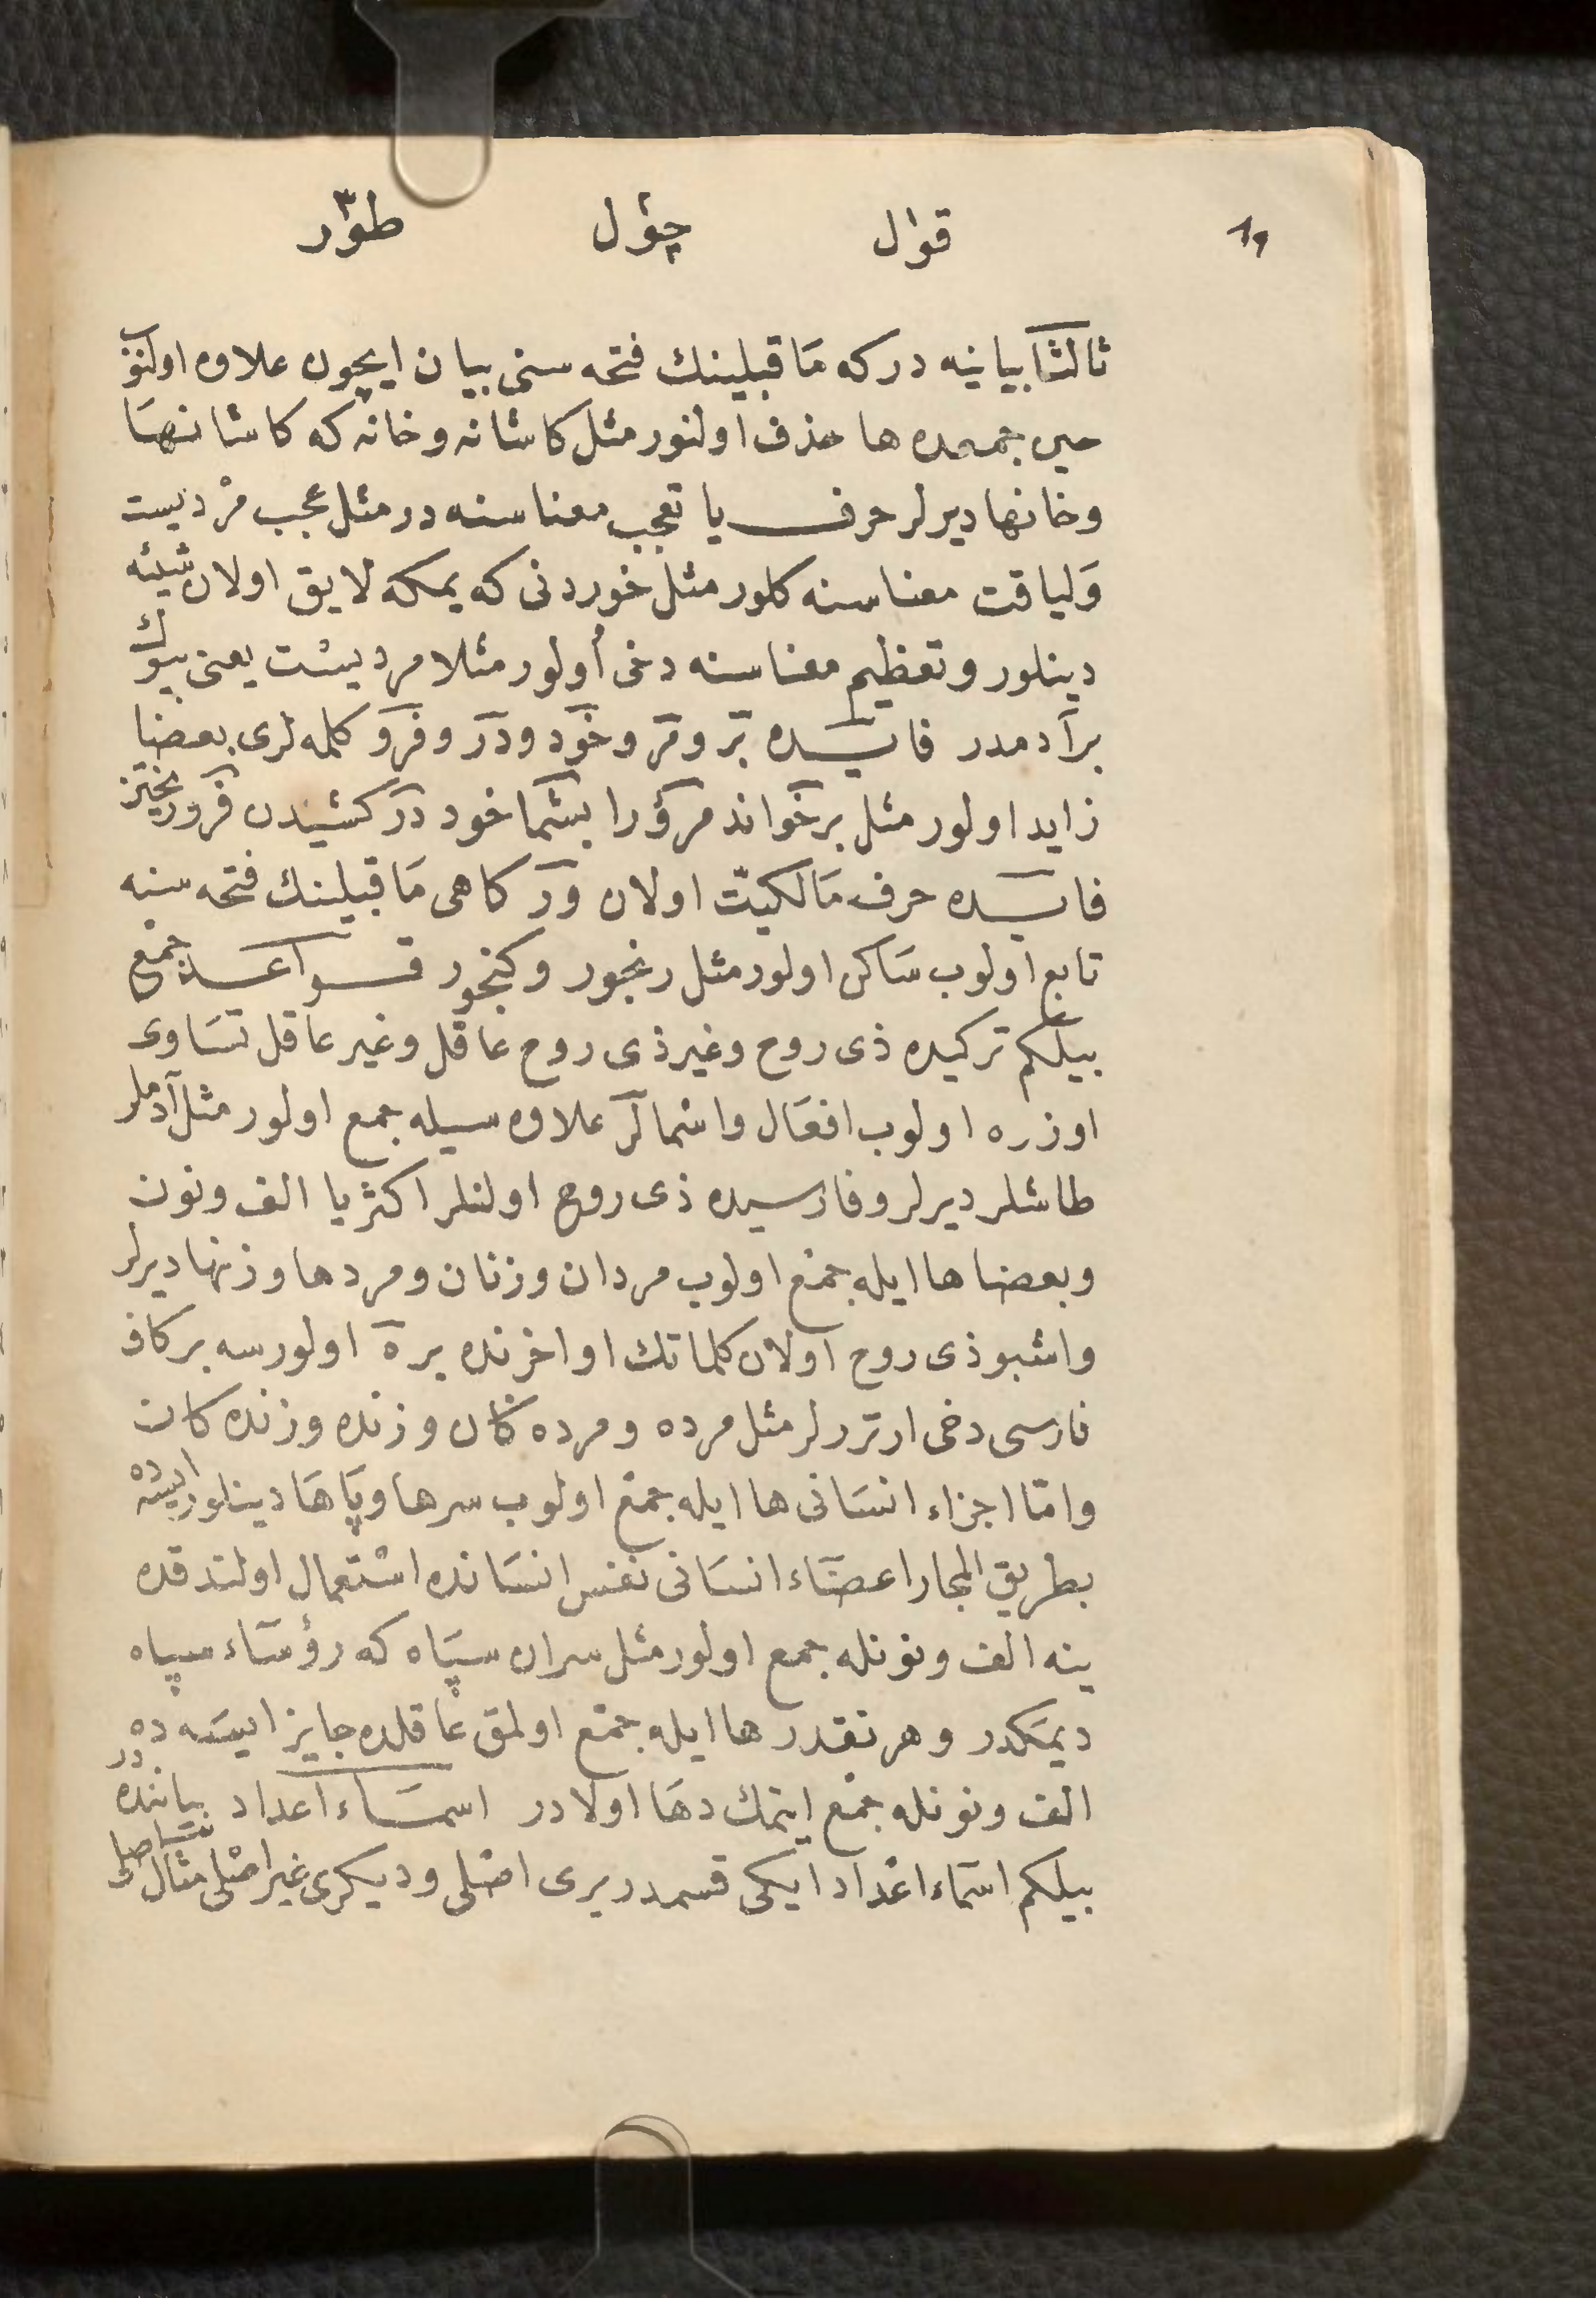 ١٩ قوال چؤل طوٓر
ثالثا بيانيه در كه مَا قبلينك فتحه سنى بيان ايچون علاوه اولنوب
حين جمعده ها حذف اولنور مثل كاشانه وخانه كه كاشانهَا
وخانها ديرلر حرف يا تعجب معناسنه در مثل عجب مرْديست
وَلياقت معناسنه كلور مثل خوردنى كه يمكه لايق اولان شيئه
دينلور وتعظيم معناسنه دخى أولور مثلا مرديست يعنى بيوك
بر آدمدر فارسيده بَر ومَر وخَود ودَر وفرَو كلمه لرى بعضا
زايد اولور مثل برخواند مرورا بشما خود دركشيدن فرو ريختن
فارسيده حرف مَالكيّت اولان ور كاهى مَا قبلينك فتحه سنه
تابع اولوب سَاكن اولور مثل رنجور وكنجور قواعد جمْع
بيلكم تركيده ذى روح وغير ذى روح عاقل وغير عاقل تسَاوى
اوزره اولوب افعَال واسْما لر علاوه سيله جمع اولور مثل آدملر
طاشلر ديرلر وفارسيده ذى روح اولنلر اكثريا الف ونون
وبعضا ها ايله جمْع اولوب مردان وزنان ومردها وزنها ديرلر
واشبو ذى روح اولان كلماتك اواخرنده بر ه اولورسه بر كاف
فارسى دخى ارتررلر مثل مرده ومرده كان وزنده وزنده كان
وامّا اجزاء انسَانى ها ايله جمْع اولوب سرها وپَاهَا دينلور ايسه ده
بطريق المجاز اعضَاء انسَانى نفس انسَانده اسْتعمال اولندقده
ينه الف ونونله جمع اولور مثل سران سپَاه كه رؤسَاء سپاه
ديمَكدر وهر نقدر ها ايله جمْع اولمق عَاقلده جايز ايسَه ده
الف ونونله جمْع ايتمك دهَا اولادر اسمَاء اعداد بياننده در
بيلكم اسمَاء اعْداد ايكى قسمدر برى اصْلى وديكرى غير اصْلى مثال اصلى